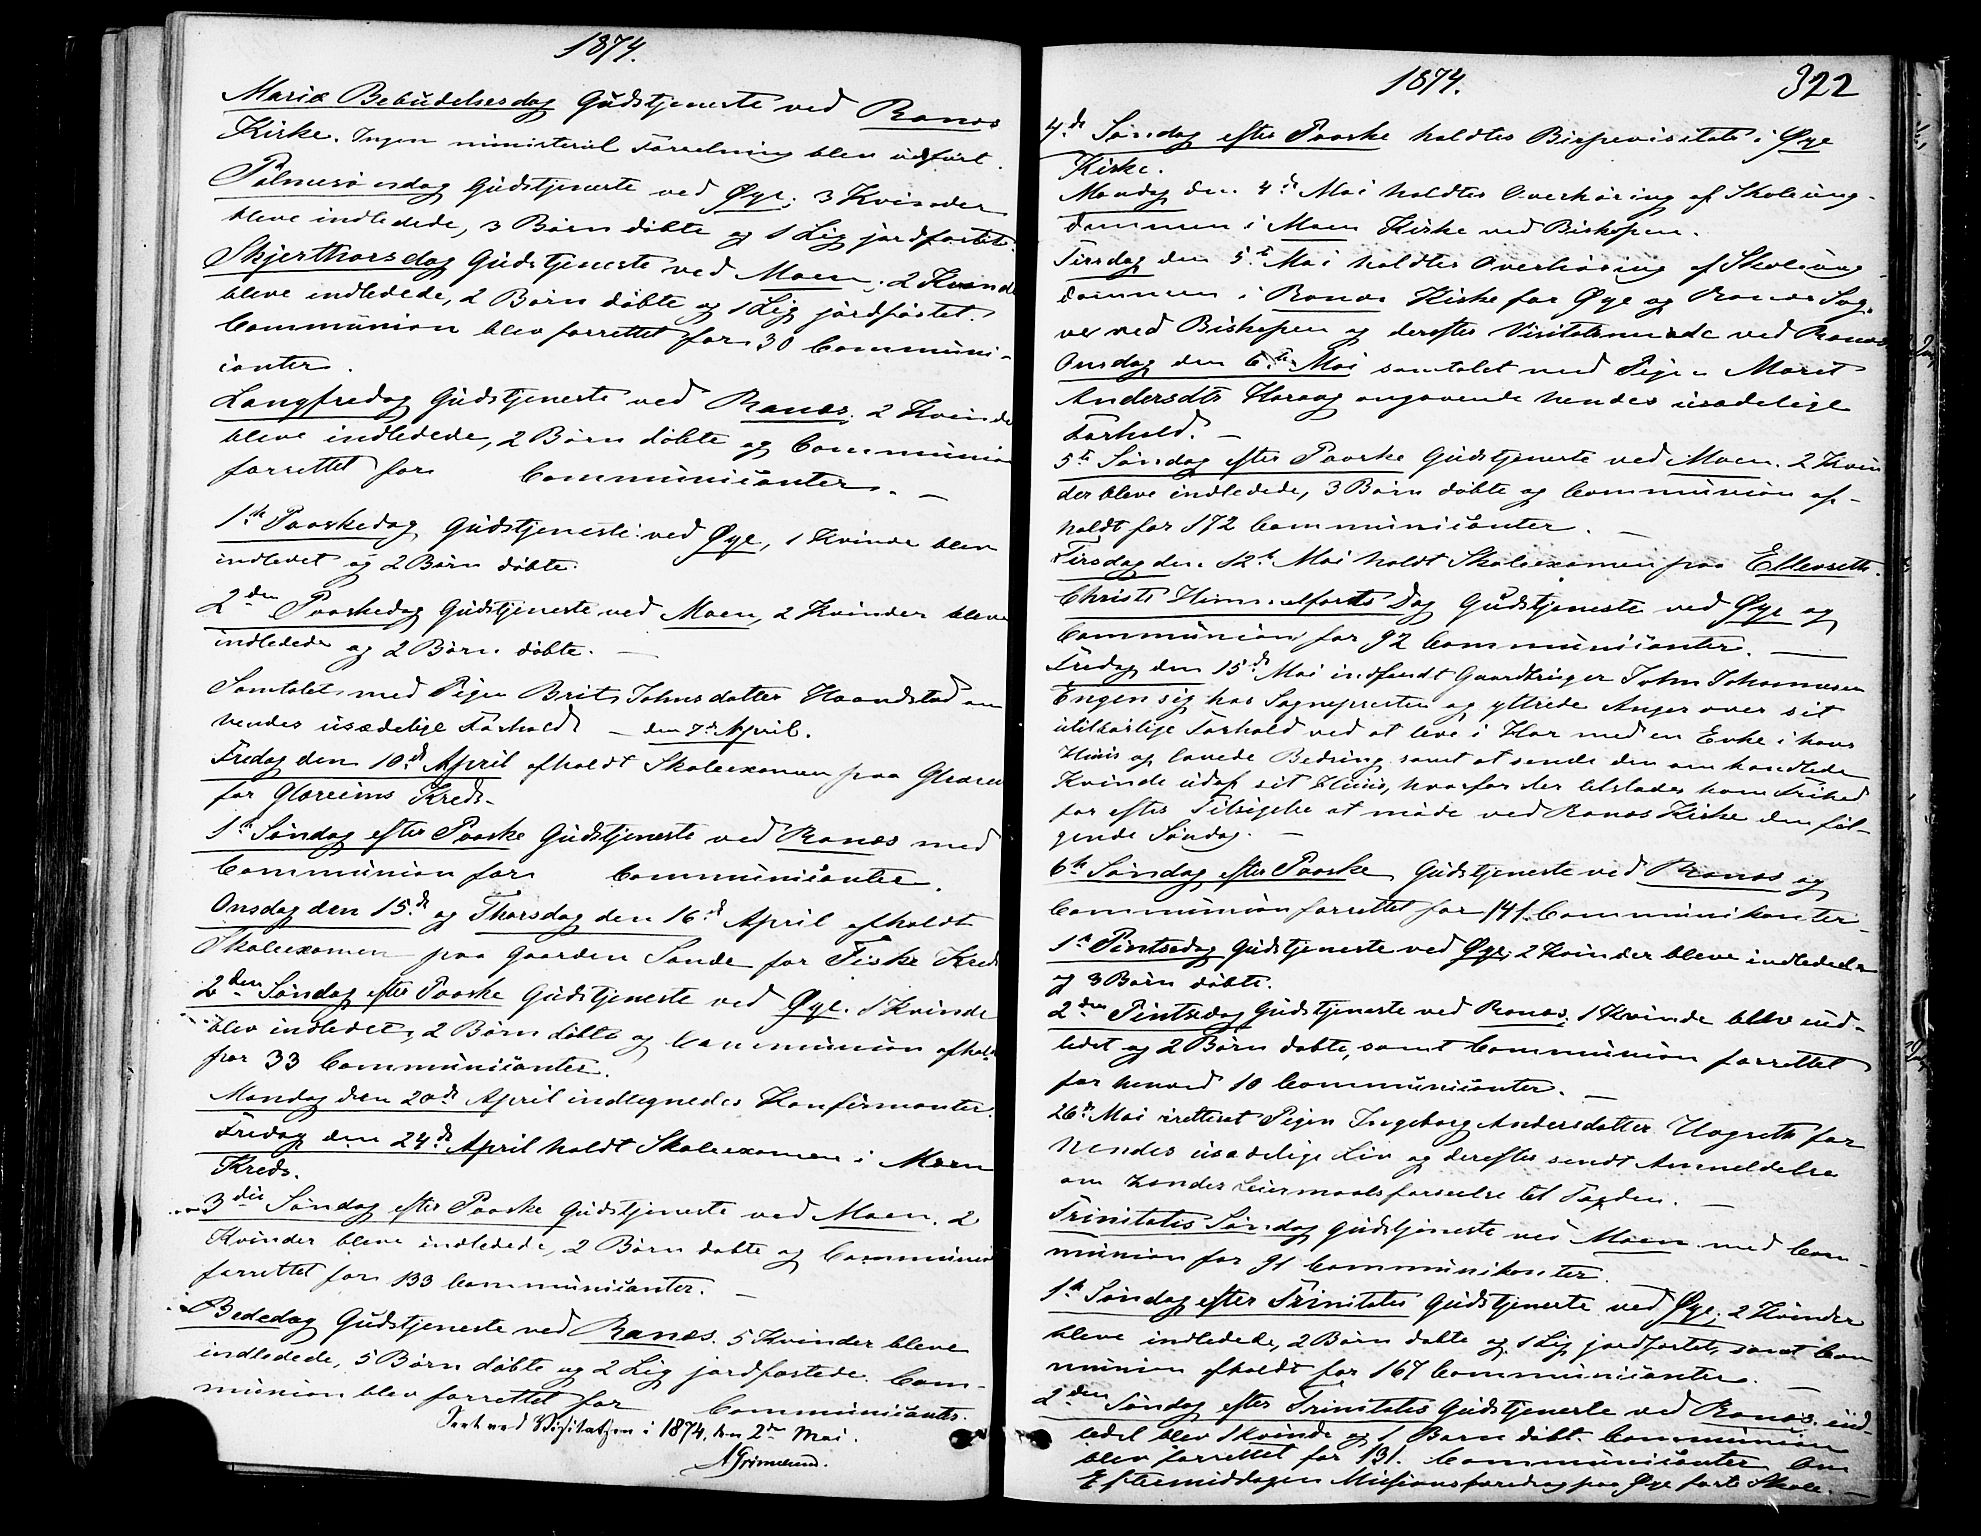 1874.
Mariæ Bebudelsesdag Gudstjeneste ved Ranæs
Kirke. Ingen ministeriel Forretning blev udført.
Palmesøndag Gudstjeneste ved Øye; 3 Kvinder
bleve indledede, 3 Børn døbte og 1 Lig jordfæstet.
Skjerthorsdag Gudstjeneste ved Moen; 2 Kvinder
bleve indledede, 2 Børn døbte og 1 Lig jordfæstet.
Communion blev forrettet for 30 Communi-
canter.
Langfredag Gudstjeneste ved Ranæs. 2 Kvinder
bleve indledede, 2 Børn døbte og Communion
forrettet for Communicanter. —
1ste Paaskedag Gudstjeneste ved Øye, 1 Kvinde blev
indledet og 2 Børn døbte.
2den Paaskedag Gudstjeneste ved Moen, 2 Kvinder bleve
indledede og 2 Børn døbte. —
Samtalet med Pigen Brit Johnsdatter Haandstad om
hendes usædelige Forhold — den 7de April.
Fredag den 10de April afholdt Skoleexamen paa Glæreim
for Glæreims Kreds.
1ste Søndag efter Paaske Gudstjeneste ved Ranæs med
Communion for Communicanter.
Onsdag den 15de og Thorsdag den 16de April afholdt
Skoleexamen paa Gaarden Sande for Fiske Kreds
2den Søndag efter Paaske Gudstjeneste ved Øye. 1 Kvinde
blev indledet, 2 Børn døbte og Communion afholdt
for 33 Communicanter.
Mandag den 20de April indtegnedes Konfirmanter.
Fredag den 24de April holdt Skoleexamen i Moen
Kreds.
3die Søndag efter Paaske Gudstjeneste ved Moen. 2
Kvinder bleve indledede, 2 Børn døbte og Communion
forrettet for 133 Communicanter. —
Bededag Gudstjeneste ved Ranæs. 5 Kvinder bleve
indledede, 5 Børn døbte og 2 Lig jordfæstede. Com-
munion blev forrettet for Communicanter.
Seet ved Visitatsen i 1874, den 2den Mai.
AGrimelund.
1874.
322
4de Søndag efter Paaske holdtes Bispevisitats i Øye
Kirke.
Mandag den 4de Mai holdtes Overhøring af Skoleung-
dommen i Moen Kirke ved Biskopen.
Tirsdag den 5te Mai holdtes Overhøring af Skoleung-
dommen i Ranæs Kirke for Øye og Ranæs Sog-
ne ved Biskopen og derefter Visitatsmøde ved Ranæs
Onsdag den 6te Mai samtalet med Pigen Marit
Andersdtr Haraag angaaende hendes usædelige
Forhold. —
5te Søndag efter Paaske Gudstjeneste ved Moen. 2 Kvin
der bleve indledede, 3 Børn døbte og Communion af-
holdt for 172 Communicanter. —
Tirsdag den 12te Mai holdt Skoleexamen paa Ellevseth.
Christi Himmelfarts Dag Gudstjeneste ved Øye og
Communion for 92 Communicanter. —
Fredag den 15de Mai indfandt Gaardbruger John Johannesen
Engen sig hos Sognepresten og yttrede Anger over sit
utilbørlige Forhold ved at leve i Hor med en Enke i hans
Huus og lovede Bedring samt at sende den omhandlede
Kvinde ud af sit Huus, hvorfor der tilstodes ham Frihed
for efter Tilsigelse at møde ved Ranæs Kirke den føl-
gende Søndag. —
6te Søndag efter Paaske Gudstjeneste ved Ranæs og
Communion forrettet for 141 Communikanter
1ste Pintsedag Gudstjeneste ved Øye; 2 Kvinder bleve indledede
og 3 Børn døbte.
2den Pintsedag Gudstjeneste ved Ranæs; 1 Kvinde blev ind-
ledet og 2 Børn døbte, samt Communion forrettet
for henved 10 Communicanter. —
26de Mai irettesat Pigen Ingeborg Andersdatter for
hendes usædelige Liv og derefter sendt Anmeldelse
om hendes Leiermaalsforseelse til Fogden. —
Trinitatis Søndag Gudstjeneste ved Moen med Com-
munion for 91 Communikanter.
1ste Søndag efter Trinitatis Gudstjeneste ved Øye; 2 Kvinder
bleve indledede, 2 Børn døbte og 1 Lig jordfæstet, samt Com
munion afholdt for 167 Communicanter. —
2den Søndag efter Trinitatis Gudstjeneste ved Ranæs. ind-
ledet blev 1 Kvinde og 1 Barn døbt. Communion
blev forrettet for 131 Communicanter. Om
Eftermiddagen Missionsforedrag paa Øye faste Skole. —